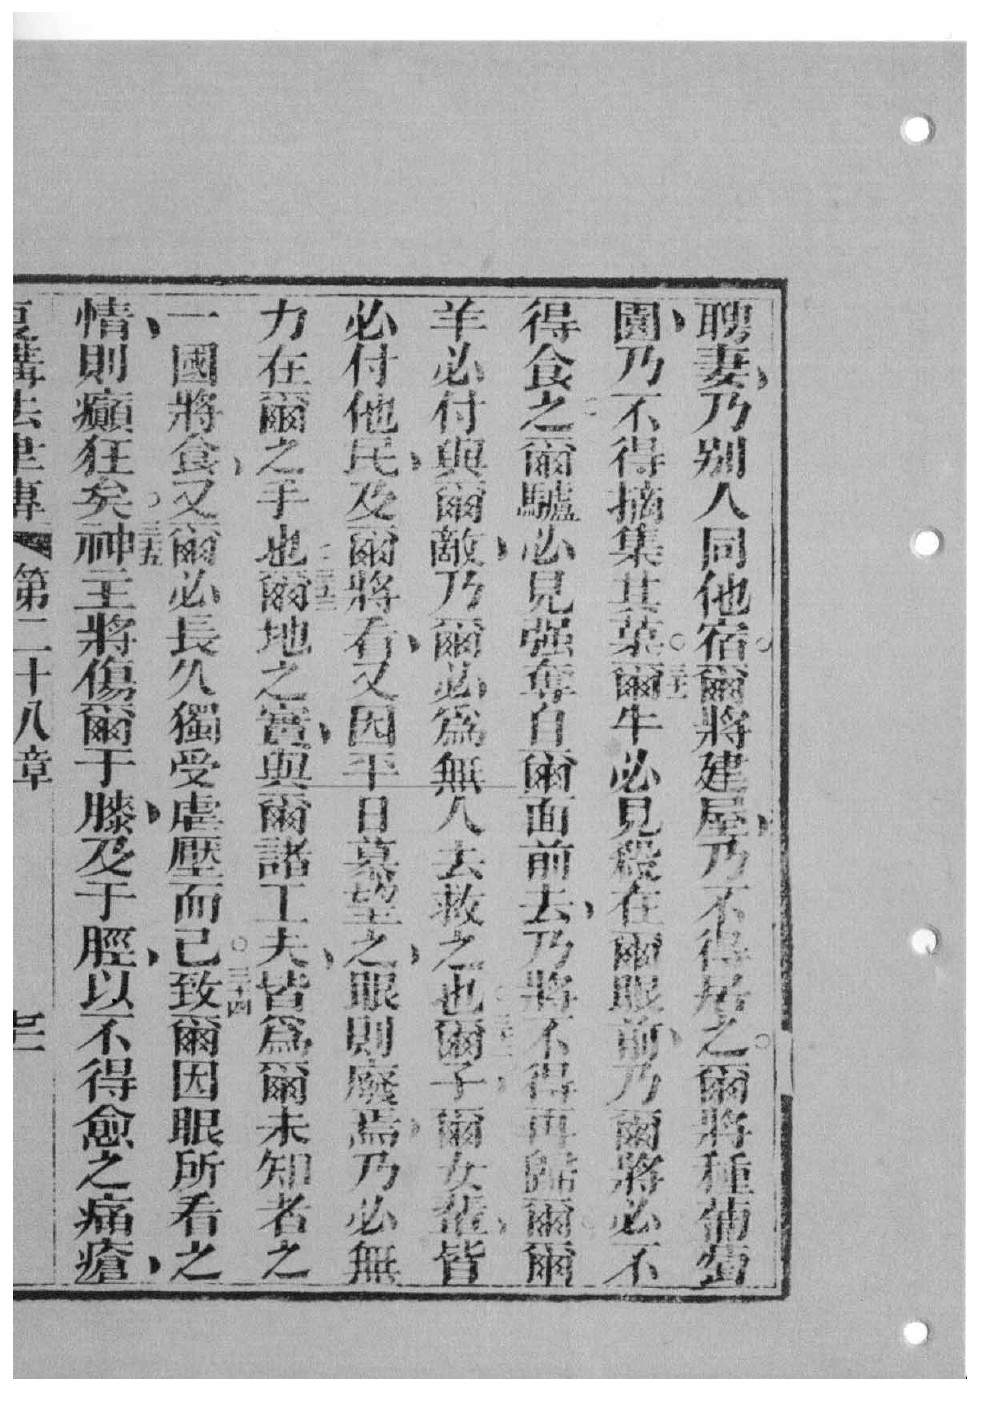 聘妻、乃别人同他宿。爾將建屋、乃不得居之。爾將種葡萄
園、乃不得摘集其菓。三十一爾牛必見殺在爾眼前、乃爾將必不
得食之。爾驢必見强奪自爾面前去、乃將不得再歸爾。爾
羊必付與爾敵、乃爾必爲無人去救之也。三十二爾子爾女輩、皆
必付他民、及爾將看、又因平日慕望之、眼則廢焉、乃必無
力在爾之手也。三十三爾地之實、與爾諸工夫、皆爲爾未知者之
一國將食、又爾必長久獨受虐壓而已。三十四致爾因眼所看之
情、則癲狂矣。三十五神主將傷爾于膝、及于脛、以不得愈之痛瘡、
復講法律傳 第二十八章